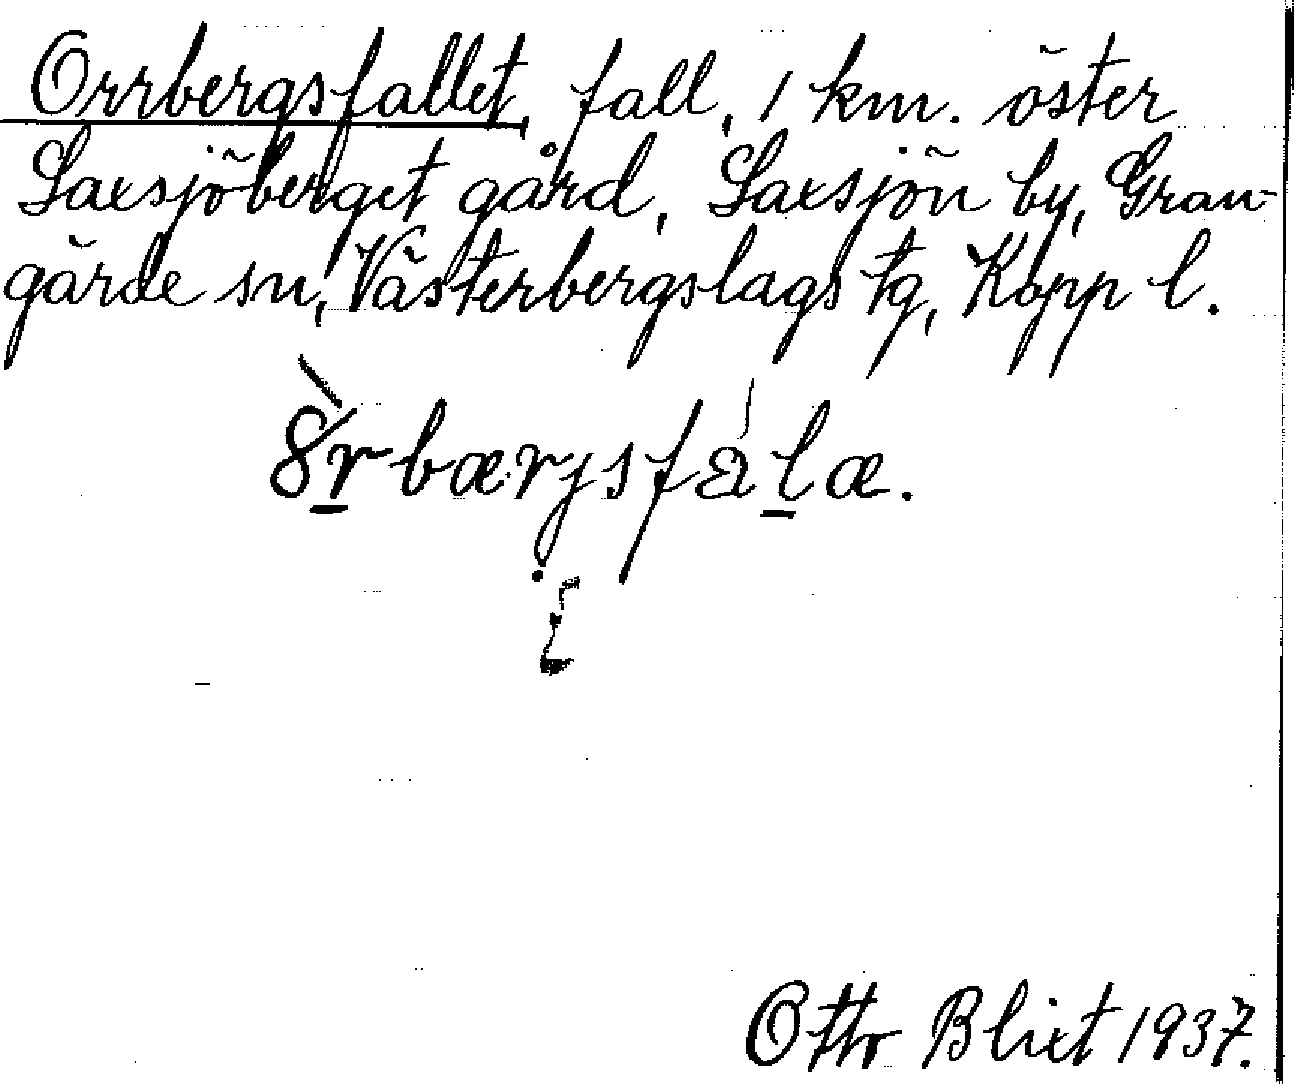 Orrbergsfallet, fall, 1 km. öster
Saxsjöberget gård, Saxsjön by, Gran-
gärde sn, Västerbergslags tg, Kopp l.
Otto Blixt 1937.